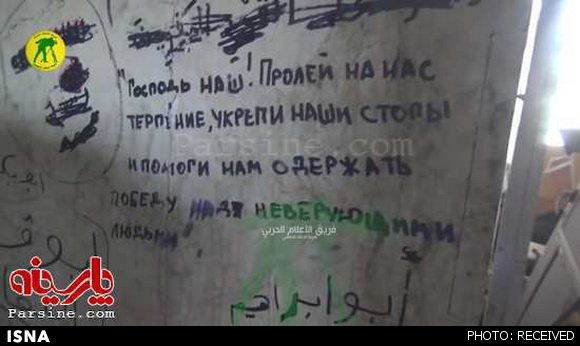 "Господь наш! Пролей на нас
терпение, укрепи наши стопы
Parsine.com
и помоги нам одержать
победу над неверующими
людьми!
فريق الإعلام الحربي
أبو ابراهيم
أبو
پارسینه
Parsine.com
ISNA
PHOTO: RECEIVED